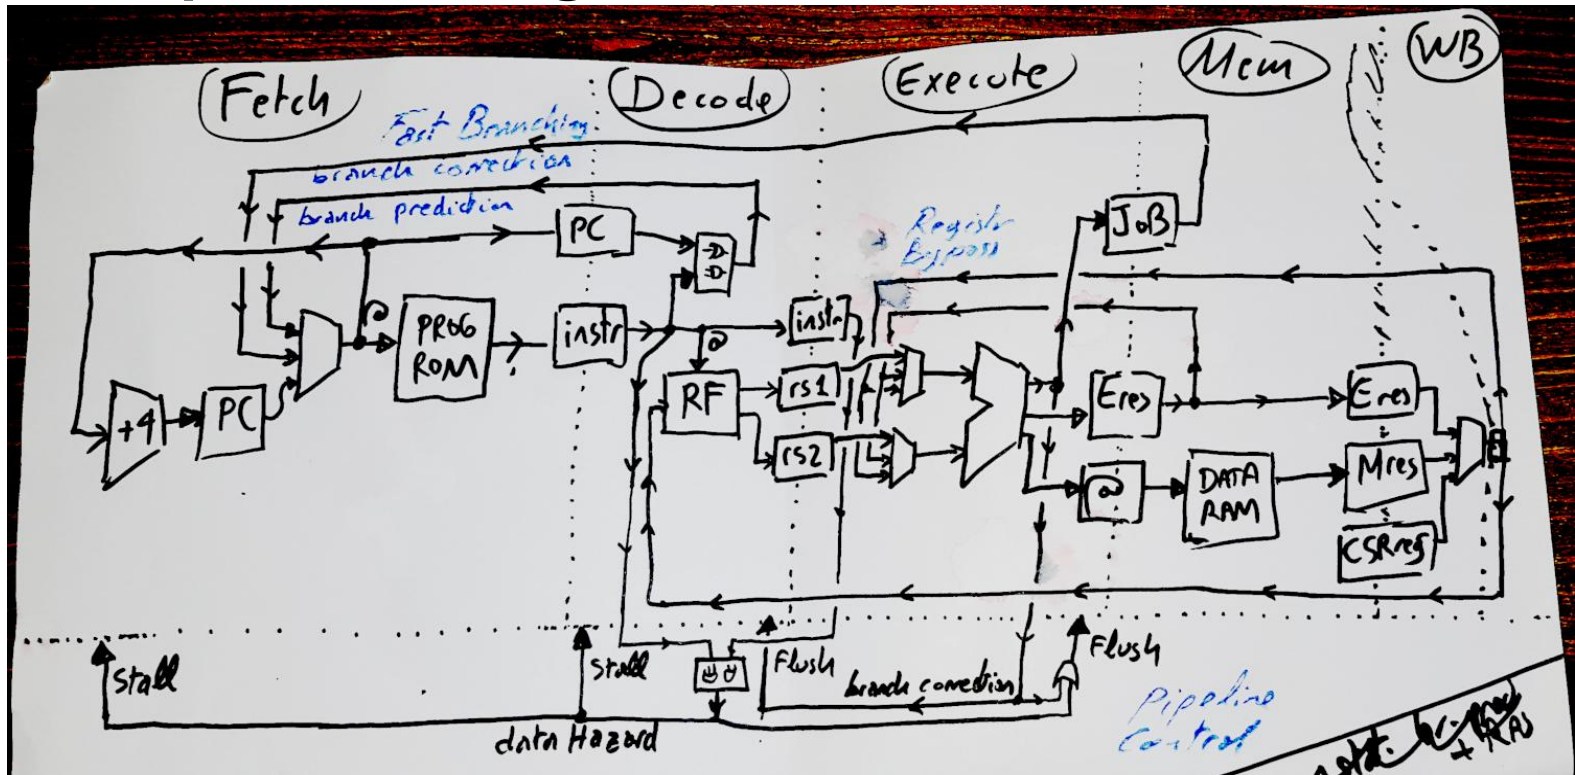 Fetch
Decode
Execute
Mem
WB
Fast Branching
branch correction
branch prediction
PC
JoB
Registr
Bypass
@
PROG
ROM
instr
@
instr
+4
PC
RF
rs1
rs2
Eres
@
DATA
RAM
Eres
Mres
CSRres
Stall
Stall
Flush
Flush
branch correction
data Hazard
Pipeline
Control
stat. br-pred
+ RAS